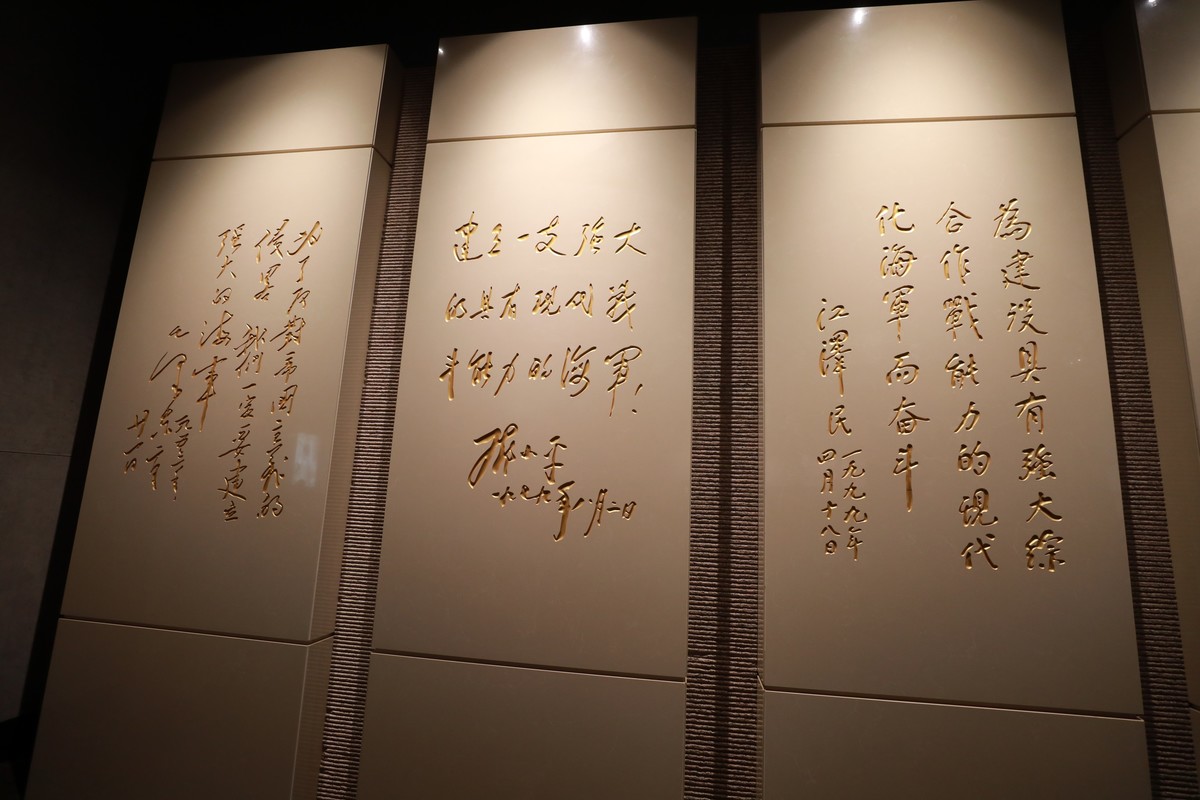 为了反對帝國主義的
侵畧 我们一定要建立
强大的海軍
毛泽东
一九五三年
二月
廿一日
建立一支强大
的具有现代战
斗能力的海軍！
邓小平
一九七九年八月二日
為建设具有强大綜
合作戰能力的現代
化海軍而奋斗
江澤民
一九九九年
四月十八日